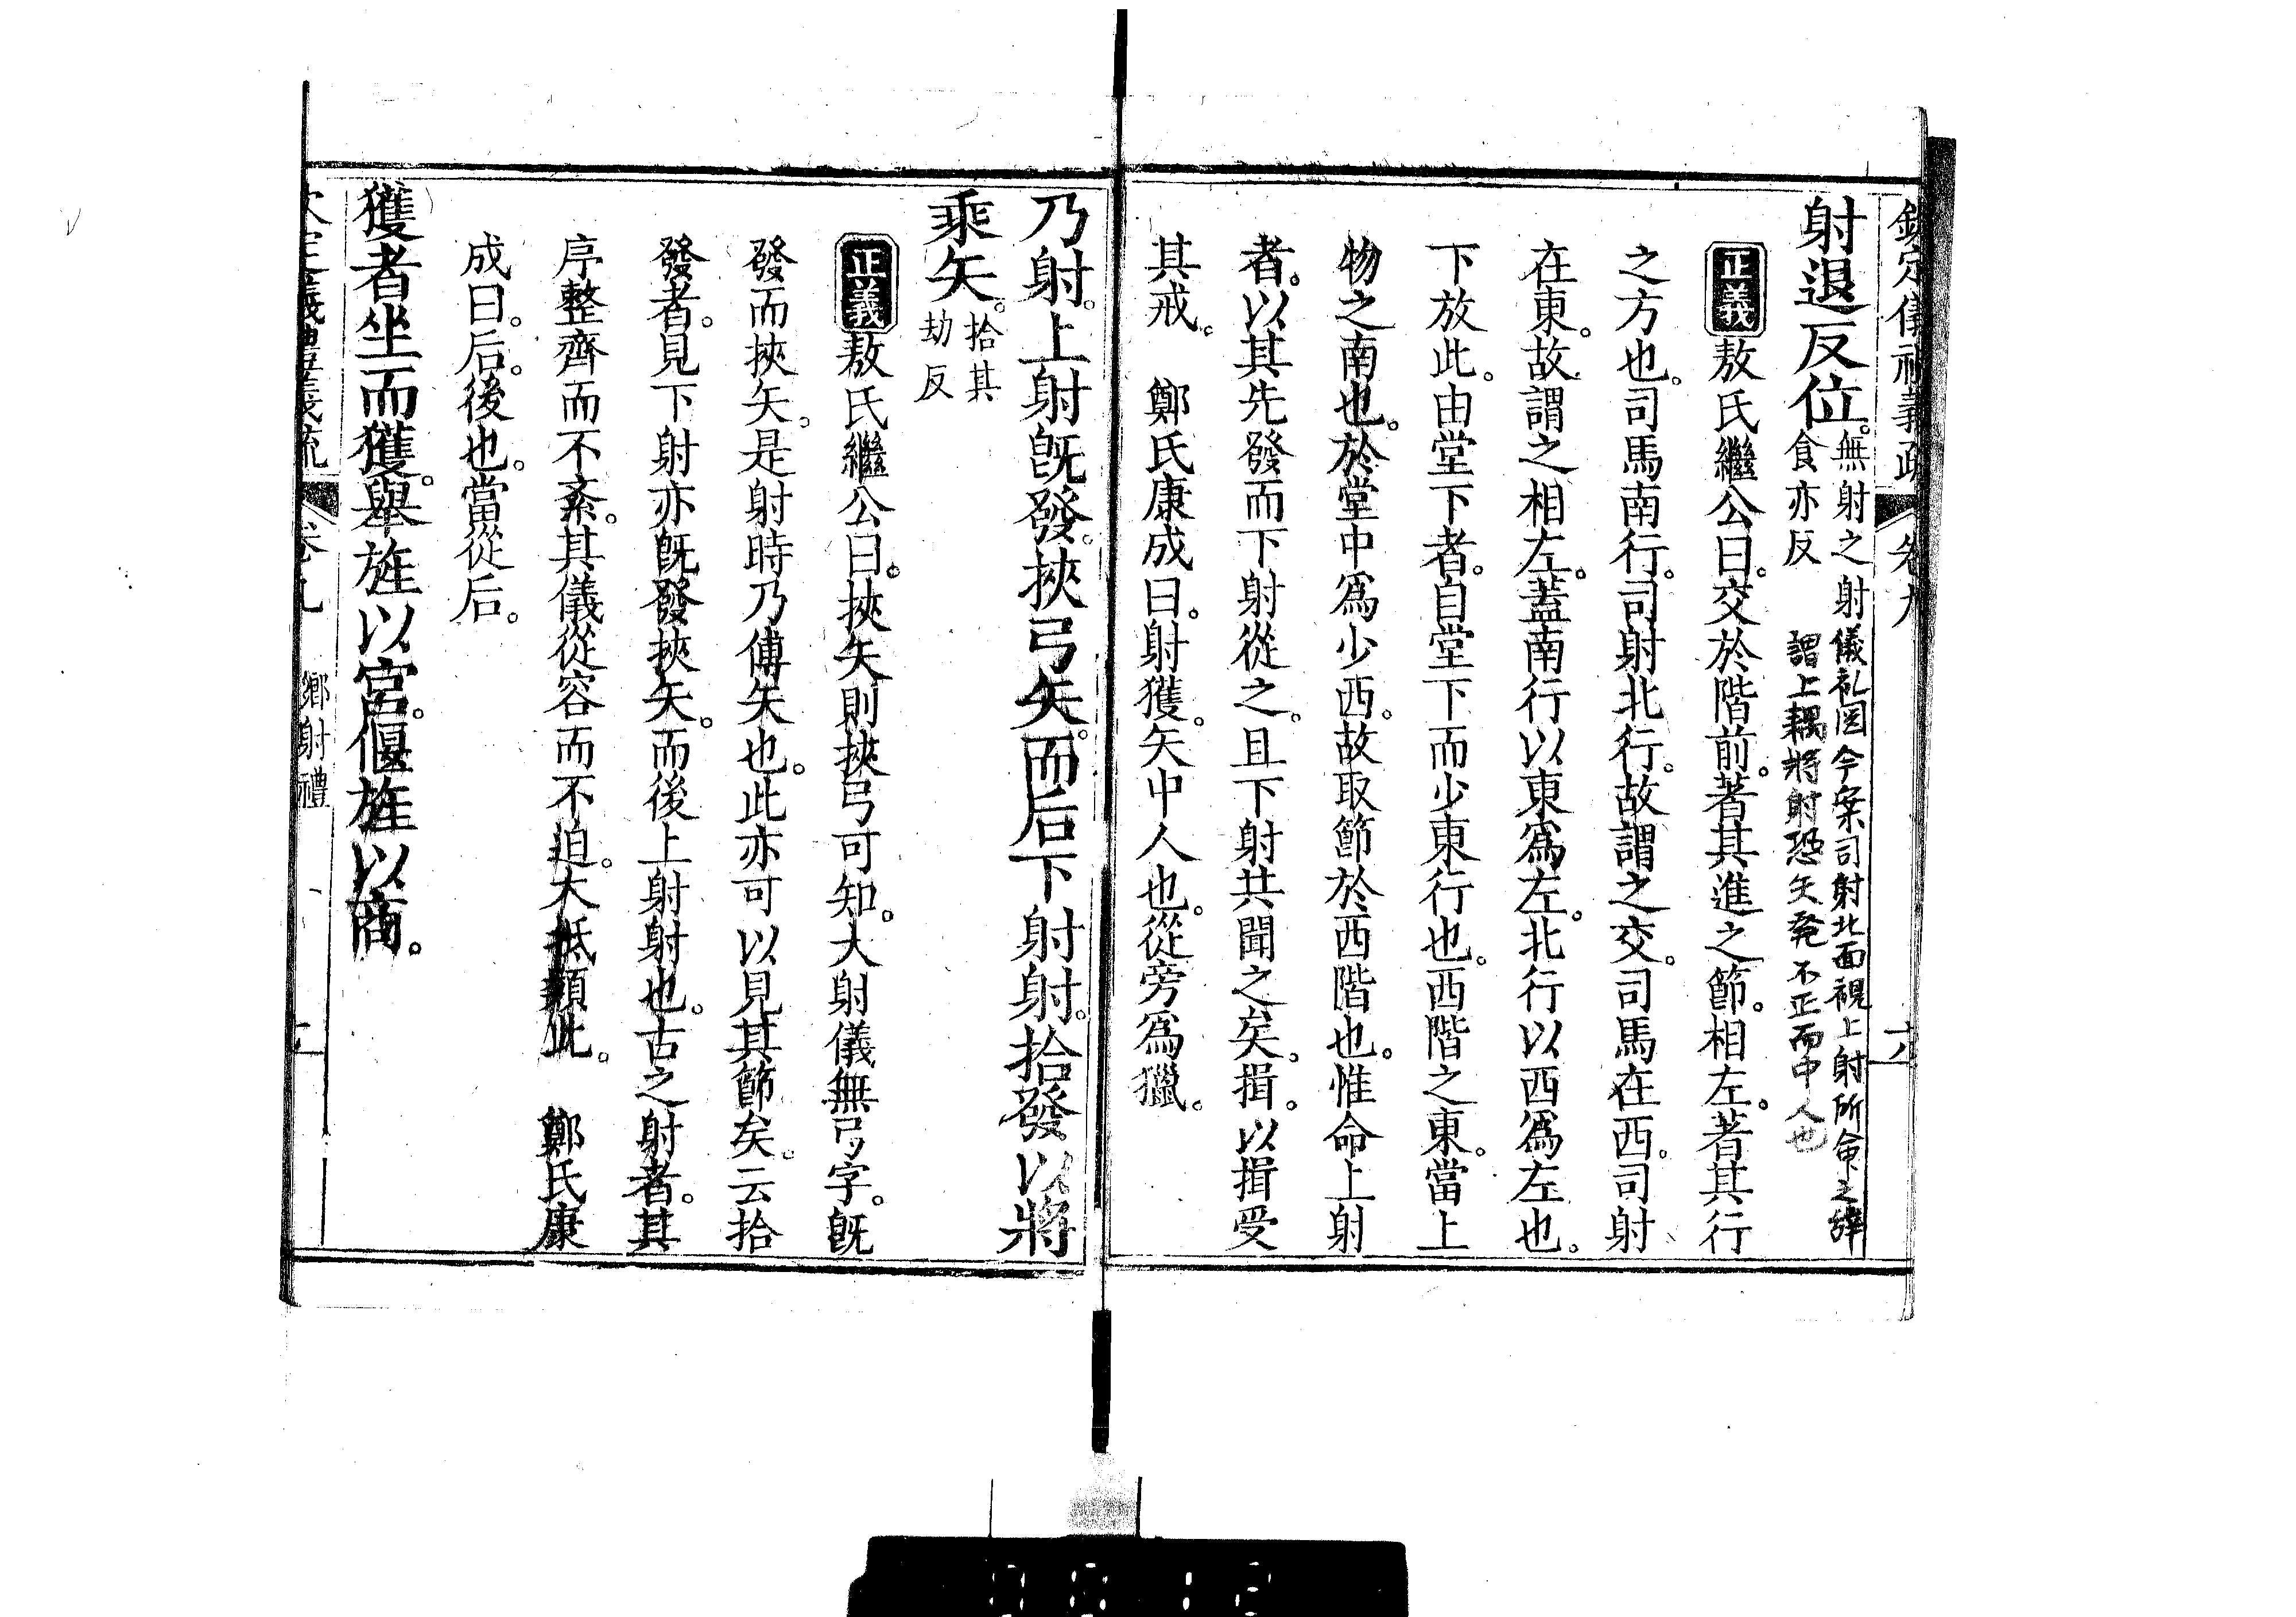 欽定儀禮義疏 卷九 六
射退反位。無射之射
食亦反
儀礼図今案司射北面視上射所命之辞
謂上耦将射恐矢発不正而中人也
正義敖氏繼公曰。交於階前。著其進之節。相左。著其行
之方也。司馬南行。司射北行。故謂之交。司馬在西。司射
在東。故謂之相左。蓋南行以東爲左。北行以西爲左也。
下放此。由堂下者。自堂下而少東行也。西階之東。當上
物之南也。於堂中爲少西。故取節於西階也。惟命上射
者。以其先發而下射從之。且下射共聞之矣。揖。以揖受
其戒。 鄭氏康成曰。射獲。矢中人也。從旁爲獵。
乃射。上射旣發。挾弓矢。而后下射射。拾發。以將
乘矢。拾其
劫反
正義敖氏繼公曰。挾矢則挾弓可知。大射儀無弓字。旣
發而挾矢。是射時乃傅矢也。此亦可以見其節矣。云拾
發者。見下射亦旣發挾矢。而後上射射也。古之射者。其
序整齊而不紊。其儀從容而不迫。大抵類此。 鄭氏康
成曰。后。後也。當從后。
獲者坐而獲。舉旌以宮。偃旌以商。
欽定義禮義疏 卷九 鄉射禮